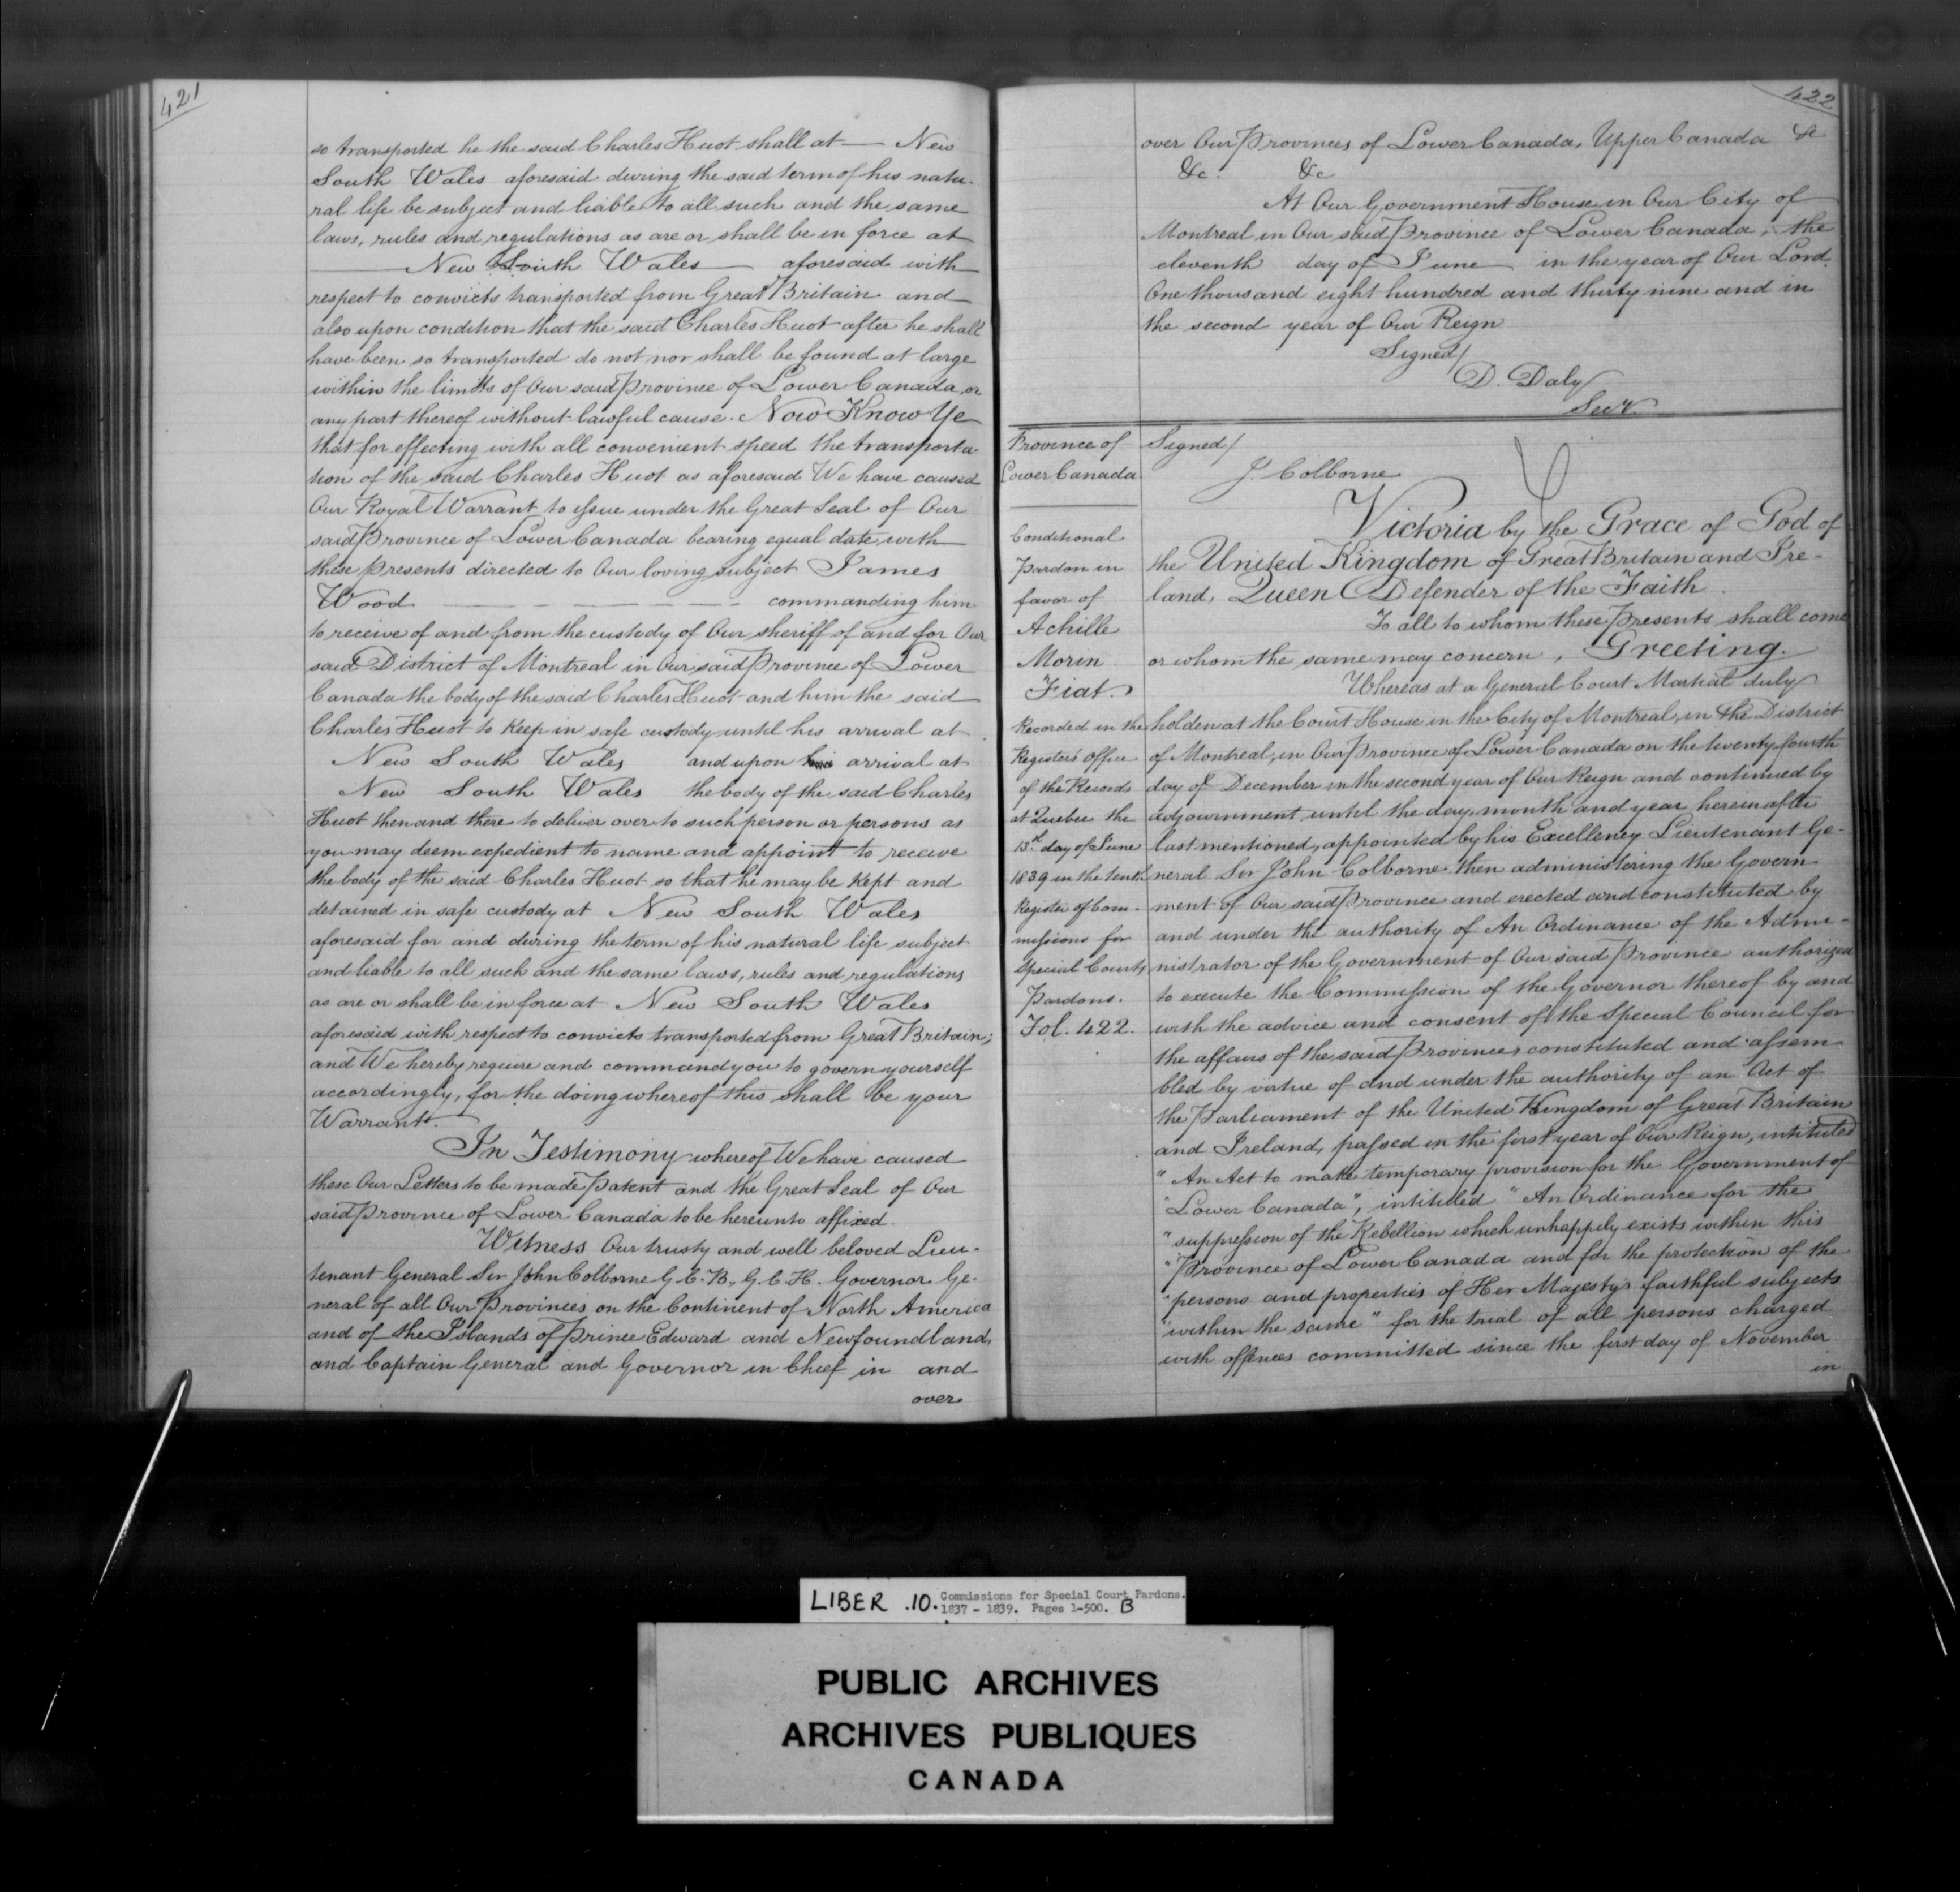 421
so transported he the said Charles Huot shall at — New
South Wales aforesaid during the said term of his natu-
ral life be subject and liable to all such and the same
laws, rules and regulations as are or shall be in force at
— New South Wales — aforesaid with
respect to convicts transported from Great Britain and
also upon condition that the said Charles Huot after he shall
have been so transported do not nor shall be found at large
within the limits of Our said Province of Lower Canada, or
any part thereof without lawful cause. Now Know Ye
that for effecting with all convenient speed the transporta-
tion of the said Charles Huot as aforesaid We have caused
Our Royal Warrant to issue under the Great Seal of Our
said Province of Lower Canada bearing equal date with
these presents directed to Our loving subject James
Wood — — — — — — commanding him
to receive of and from the custody of Our sheriff of and for Our
said District of Montreal in Our said Province of Lower
Canada the body of the said Charles Huot and him the said
Charles Huot to keep in safe custody until his arrival at
New South Wales and upon his arrival at
New South Wales the body of the said Charles
Huot then and there to deliver over to such person or persons as
you may deem expedient to name and appoint to receive
the body of the said Charles Huot so that he may be kept and
detained in safe custody at New South Wales
aforesaid for and during the term of his natural life subject
and liable to all such and the same laws, rules and regulations
as are or shall be in force at New South Wales
aforesaid with respect to convicts transported from Great Britain;
and We hereby require and command you to govern yourself
accordingly, for the doing whereof this shall be your
Warrant.
In Testimony whereof We have caused
these Our Letters to be made Patent and the Great Seal of Our
said Province of Lower Canada to be hereunto affixed.
Witness Our trusty and well beloved Lieu-
tenant General Sir John Colborne G. C. B., G. C. H. Governor Ge-
neral of all Our Provinces on the Continent of North America
and of the Islands of Prince Edward and Newfoundland,
and Captain General and Governor in Chief in and
over
422
over Our Provinces of Lower Canada, Upper Canada &c
&c. &c
At Our Government House in Our City of
Montreal in Our said Province of Lower Canada, the
eleventh day of June in the year of Our Lord
One thousand eight hundred and thirty nine and in
the second year of Our Reign
Signed/
D. Daly
Secy
Province of
Lower Canada
Conditional
Pardon in
favor of
Achille
Morin
Fiat.
Recorded in the
Register's Office
of the Records
at Quebec the
13th day of June
1839 in the tenth
Register of Com-
missions for
Special Courts
Pardons.
Fol. 422.
Signed/
J. Colborne
Victoria by the Grace of God of
the United Kingdom of Great Britain and Ire-
land, Queen Defender of the Faith.
To all to whom these Presents shall come
or whom the same may concern, Greeting.
Whereas at a General Court Martial duly
holden at the Court House in the City of Montreal, in the District
of Montreal, in Our Province of Lower Canada on the twenty fourth
day of December in the second year of Our Reign and continued by
adjournment until the day, month and year hereinafter
last mentioned, appointed by his Excellency Lieutenant Ge-
neral Sir John Colborne then administering the Govern-
ment of Our said Province and erected and constituted by
and under the authority of An Ordinance of the Admi-
nistrator of the Government of Our said Province authorized
to execute the Commission of the Governor thereof by and
with the advice and consent of the Special Council for
the affairs of the said Province, constituted and assem-
bled by virtue of and under the authority of an Act of
the Parliament of the United Kingdom of Great Britain
and Ireland, passed in the first year of Our Reign, intituted
" An Act to make temporary provision for the Government of
" Lower Canada", intituled " An Ordinance for the
" suppression of the Rebellion which unhappily exists within this
" Province of Lower Canada and for the protection of the
" persons and properties of Her Majesty's faithful subjects
" within the same " for the trial of all persons charged
with offences committed since the first day of November
in
LIBER .10. Commissions for Special Court Pardons.
1837 - 1839. Pages 1-500. B
PUBLIC ARCHIVES
ARCHIVES PUBLIQUES
CANADA